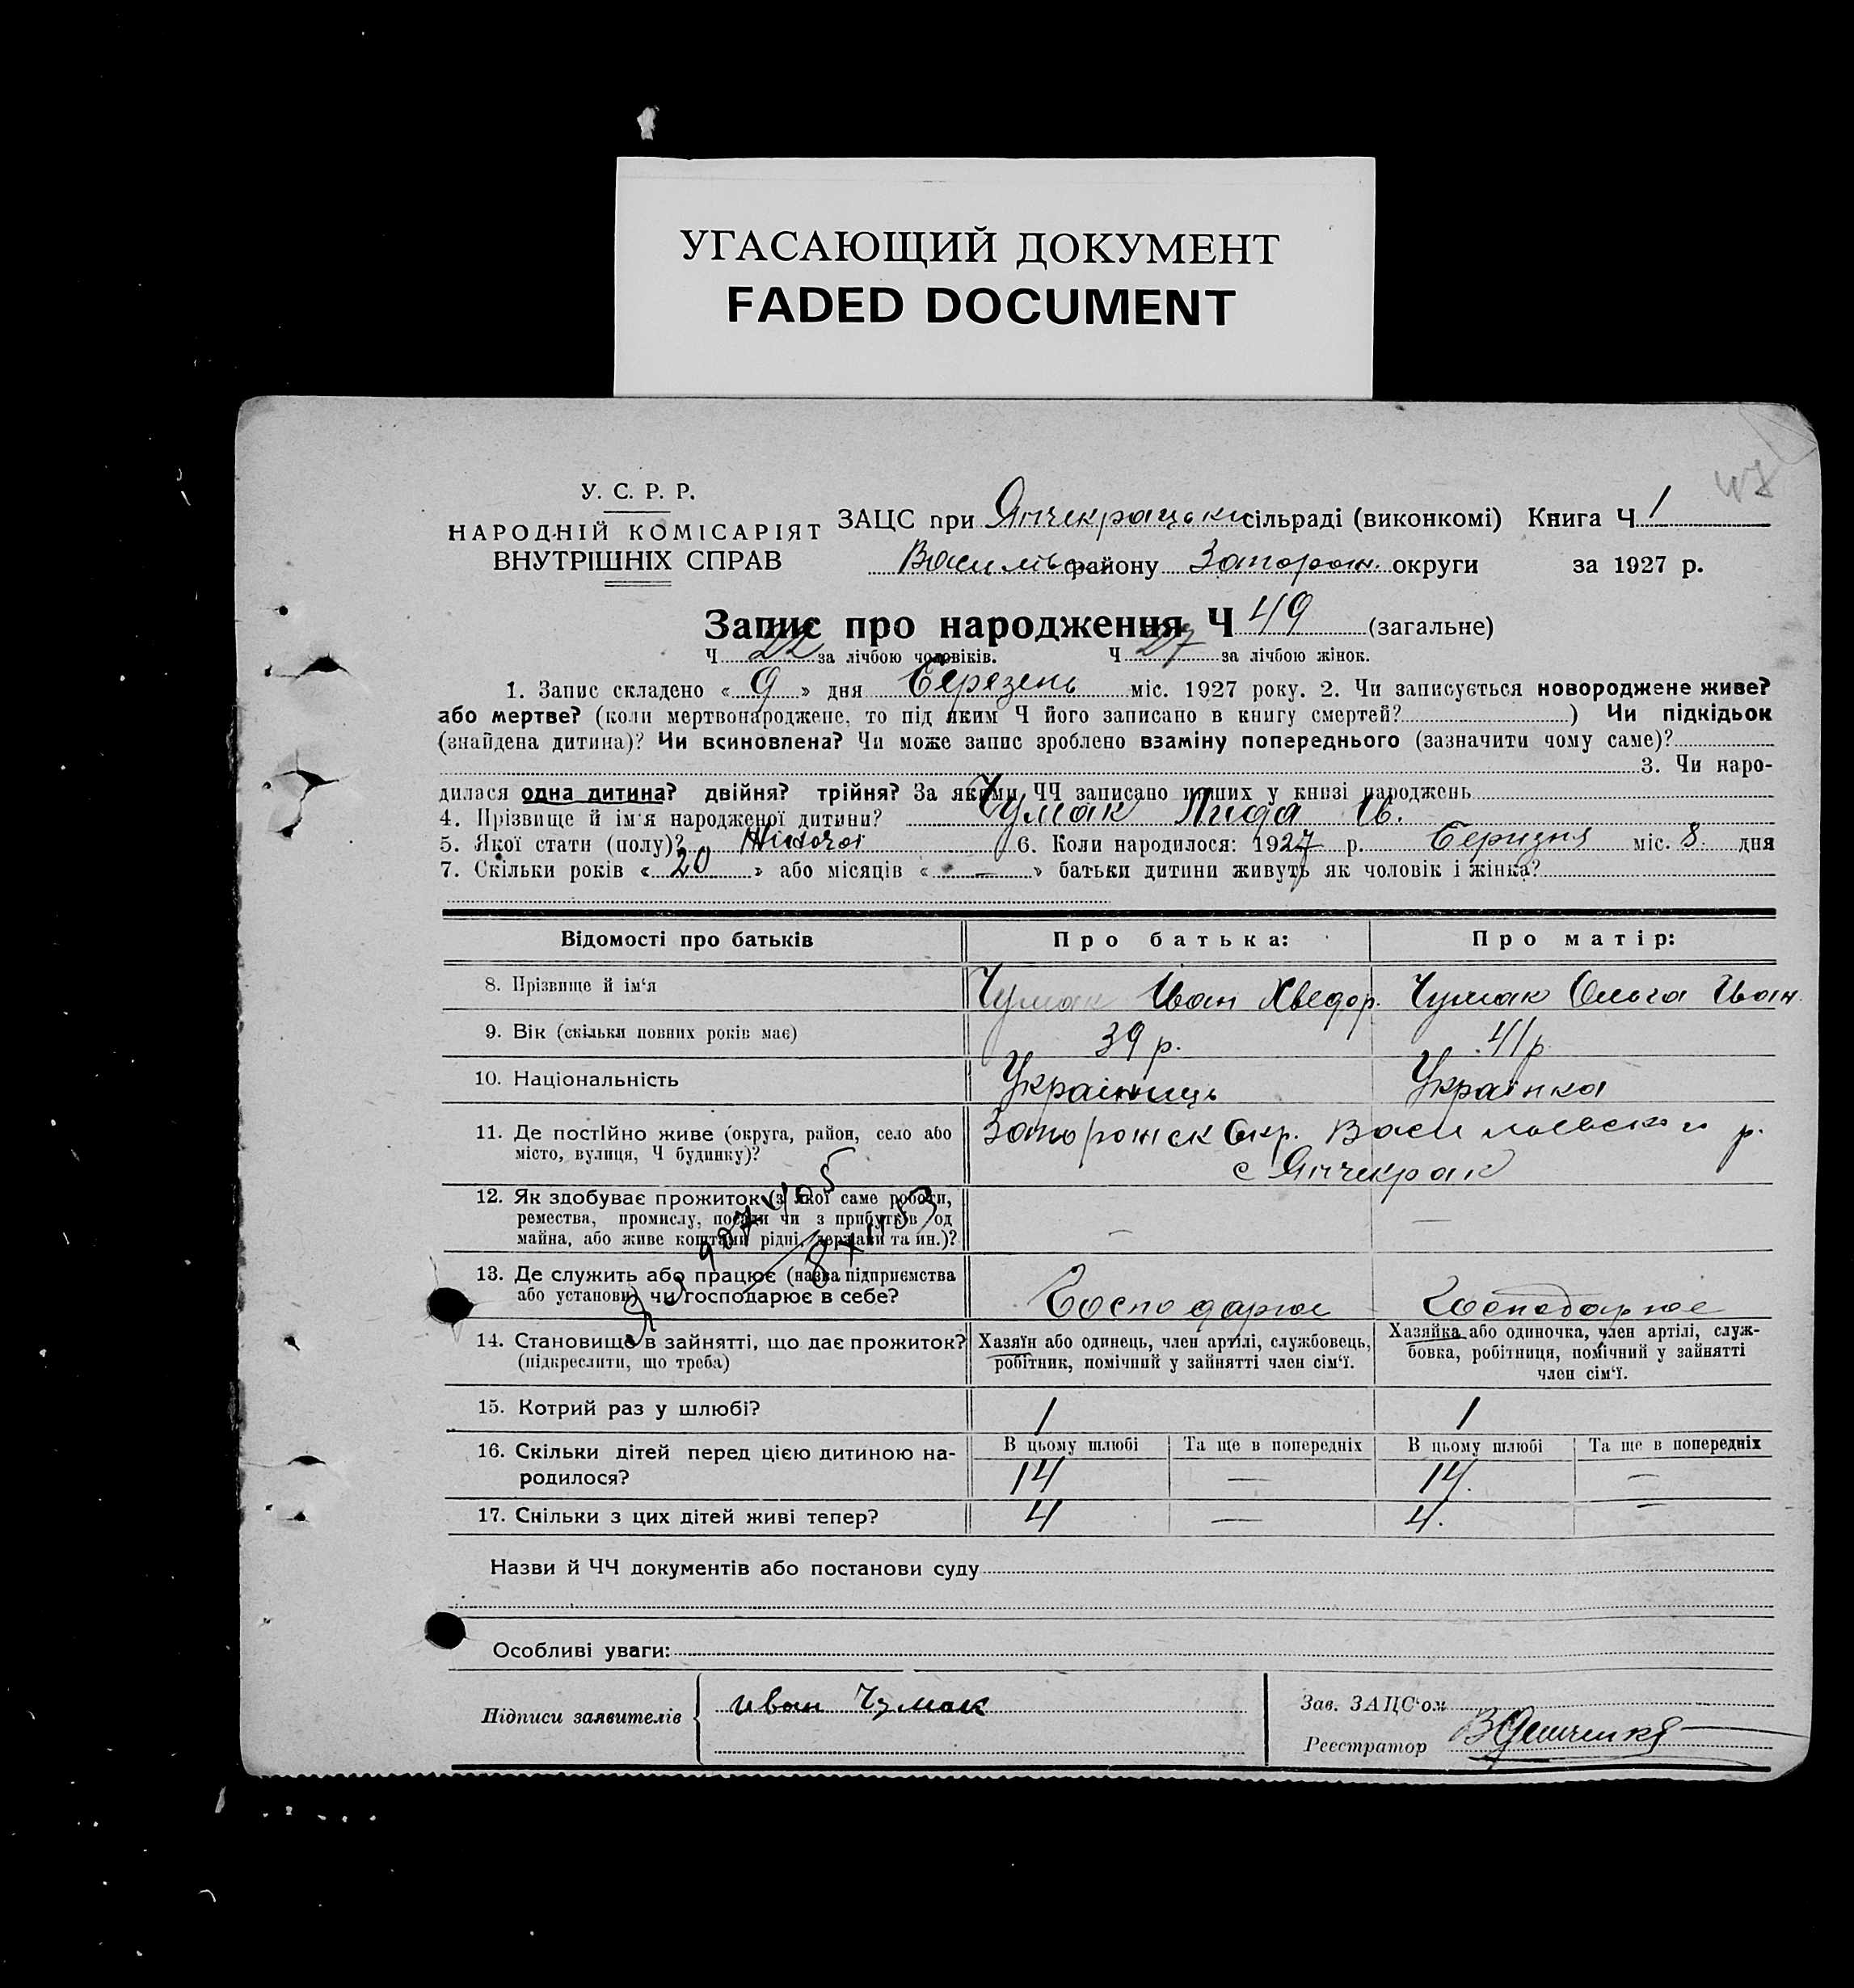 УГАСАЮЩИЙ ДОКУМЕНТ
FADED DOCUMENT
У. С. Р. Р.
НАРОДНІЙ КОМІСАРІЯТ
ВНУТРІШНІХ СПРАВ
ЗАЦС при Янчекрацьки сільраді (виконкомі) Книга Ч 1
Василів району Запорож. округи за 1927 р.
Запис про народження Ч 49 (загальне)
Ч 22 за лічбою чоловіків. Ч 27 за лічбою жінок.
1. Запис складено « 9 » дня Березень міс. 1927 року. 2. Чи записується новороджене живе?
або мертве? (коли мертвонароджене, то під яким Ч його записано в книгу смертей? ) Чи підкідьок
(знайдена дитина)? Чи всиновлена? Чи може запис зроблено взаміну попереднього (зазначити чому саме)?
3. Чи наро-
дилася одна дитина? двійня? трійня? За якими ЧЧ записано инших у книзі народжень
4. Прізвище й ім'я народженої дитини? Чумак Лида Ив.
5. Якої стати (полу)? Жіночої 6. Коли народилося: 1927 р. Березня міс. 8. дня
7. Скільки років « 20 » або місяців « — » батьки дитини живуть як чоловік і жінка?
Відомості про батьків Про батька: Про матір:
8. Прізвище й ім'я Чумак Иван Хведор. Чумак Ольга Иван.
9. Вік (скільки повних років має) 39 р. 41 р.
10. Національність Українець Українка
11. Де постійно живе (округа, район, село або Запорожск Окр. Васильевского р.
місто, вулиця, Ч будинку)? с Янчекрак
12. Як здобуває прожиток (з якої саме роботи,
ремества, промислу, посади чи з прибутків од
майна, або живе коштами рідні, держави та ин.)? — —
13. Де служить або працює (назва підприємства
або установи) чи господарює в себе? Господарює Господарює
14. Становище в зайнятті, що дає прожиток? Хазяїн або одинець, член артілі, службовець, Хазяйка або одиночка, член артілі, служ-
(підкреслити, що треба) робітник, помічний у зайнятті член сім'ї. бовка, робітниця, помічний у зайнятті
член сім'ї.
15. Котрий раз у шлюбі? 1 1
16. Скільки дітей перед цією дитиною на- В цьому шлюбі Та ще в попередніх В цьому шлюбі Та ще в попередніх
родилося? 14 — 14. —
17. Скільки з цих дітей живі тепер? 4 — 4. —
Назви й ЧЧ документів або постанови суду
Особливі уваги:
Підписи заявителів иван Чумак Зав. ЗАЦС'ом
Реєстратор